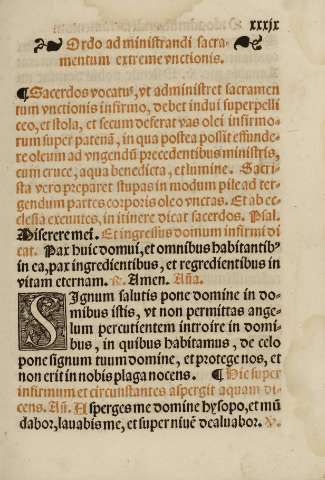 xxxix
Ordo administrandi sacra-
mentum extreme vnctionis.
¶Sacerdos vocatus, vt administret sacramen
tum vnctionis infirmo, debet indui superpelli
ceo, et stola, et secum deferat vas olei infirmo-
rum super patenā, in qua postea possit effunde-
re oleum ad vngendū precedentibus ministris,
cum cruce, aqua benedicta, et lumine. Sacri-
sta vero preparet stupas in modum pile ad ter-
gendum partes corporis oleo vnctas. Et ab ec-
clesia exeuntes, in itinere dicat sacerdos. Psal.
Miserere mei. Et ingressus domum infirmi di
cat. Pax huic domui, et omnibus habitantibꝰ
in ea, pax ingredientibus, et regredientibus in
vitam eternam. ℟. Amen. Aña.
SIgnum salutis pone domine in do-
mibus istis, vt non permittas ange-
lum percutientem introire in domi-
bus, in quibus habitamus, de celo
pone signum tuum domine, et protege nos, et
non erit in nobis plaga nocens. ¶Hic super
infirmum et circunstantes aspergit aquam di-
cens. Añ. Asperges me domine hysopo, et mū
dabor, lauabis me, et super niuē dealuabor. ℣.